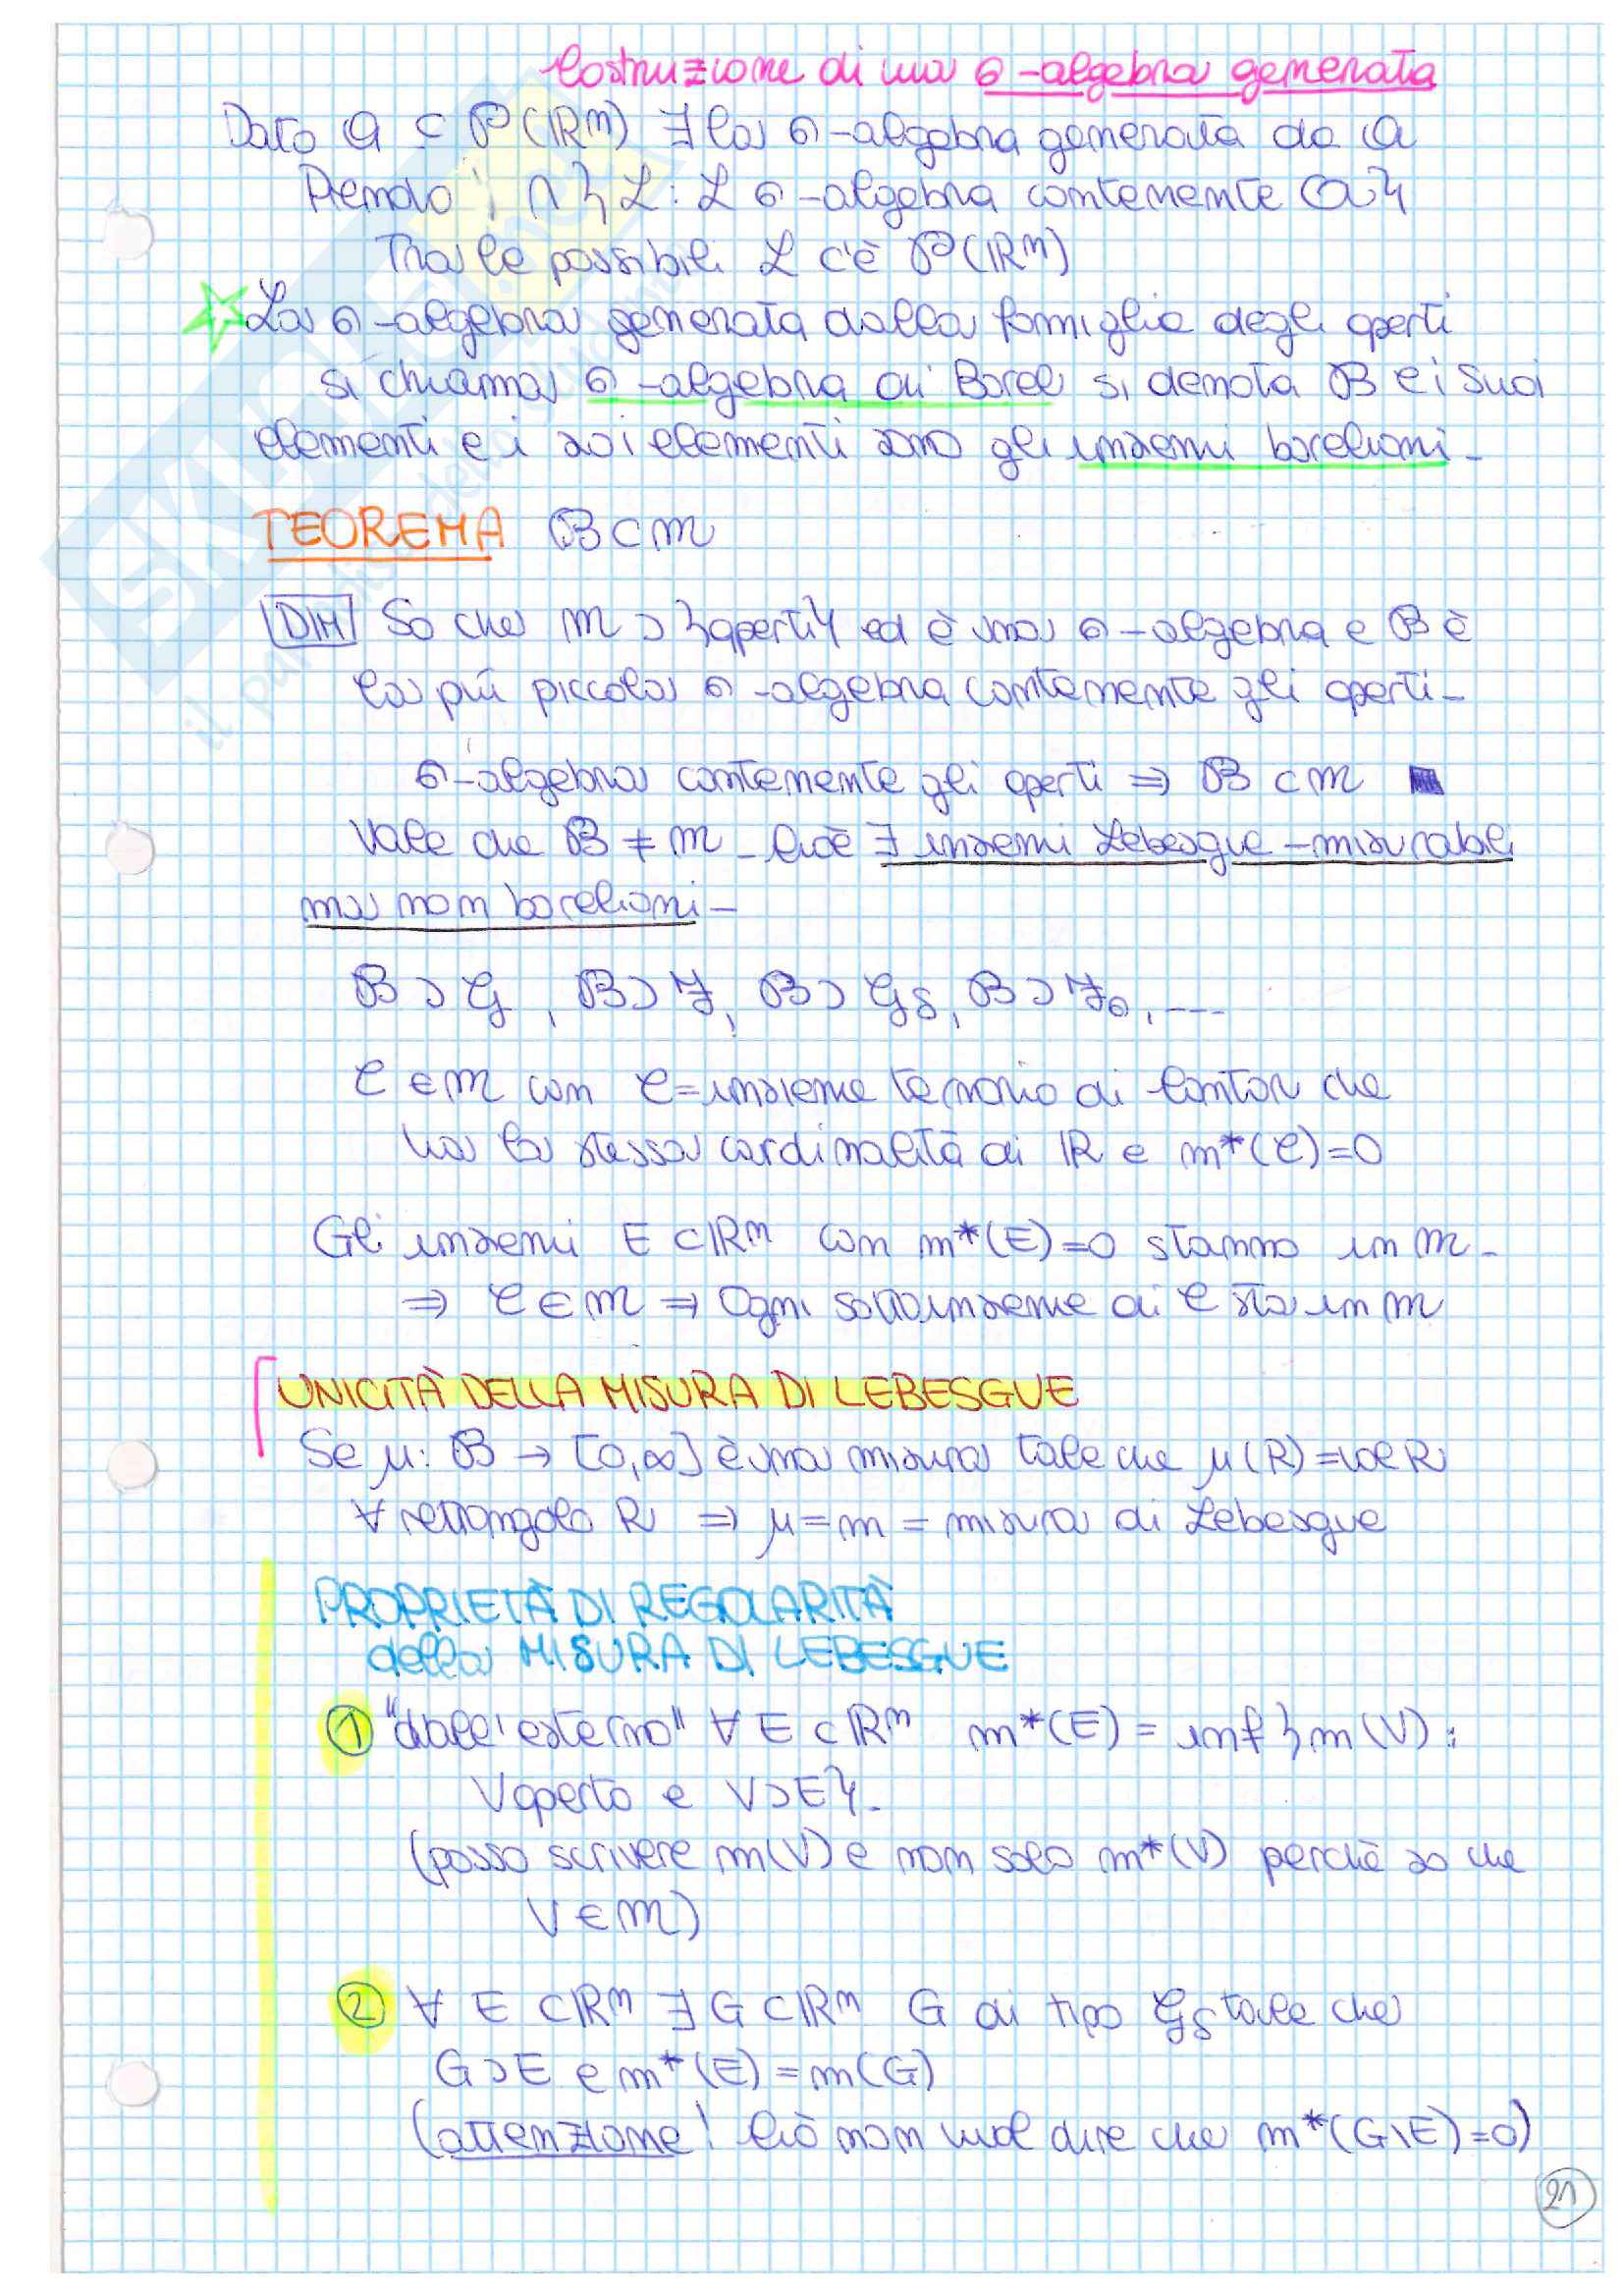 Costruzione di una σ-algebra generata
Dato a ⊂ P(ℝⁿ) ∃ la σ-algebra generata da a
Prendo: ∩{L : L σ-algebra contenente a}
Tra le possibili L c'è P(ℝⁿ)
La σ-algebra generata dalla famiglia degli aperti
si chiama σ-algebra di Borel si denota B e i suoi
elementi e i suoi elementi sono gli insiemi boreliani-
TEOREMA B⊂M
DIM So che M ⊃ {aperti} ed è una σ-algebra e B è
la più piccola σ-algebra contenente gli aperti-
σ-algebra contenente gli aperti ⇒ B ⊂ M ■
Vale che B ≠ M - Cioè ∃ insiemi Lebesgue-misurabili
ma non boreliani-
B⊃G, B⊃F, B⊃Gδ, B⊃Fσ, ----
C ∈ M con C = insieme ternario di Cantor che
ha la stessa cardinalità di ℝ e m*(C)=0
Gli insiemi E ⊂ ℝⁿ con m*(E)=0 stanno in M-
⇒ C ∈ M ⇒ Ogni sottoinsieme di C sta in M
UNICITÀ DELLA MISURA DI LEBESGUE
Se μ: B → [0,∞] è una misura tale che μ(R)=vol R
∀ rettangolo R ⇒ μ=m = misura di Lebesgue
PROPRIETÀ DI REGOLARITÀ
della MISURA DI LEBESGUE
① "dall'esterno" ∀ E ⊂ ℝⁿ m*(E) = inf{m(V):
V aperto e V⊃E}.
(posso scrivere m(V) e non solo m*(V) perchè so che
V ∈ M)
② ∀ E ⊂ ℝⁿ ∃ G ⊂ ℝⁿ G di tipo Gδ tale che
G⊃E e m*(E)=m(G)
(attenzione! Ciò non vuol dire che m*(G\E)=0)
21